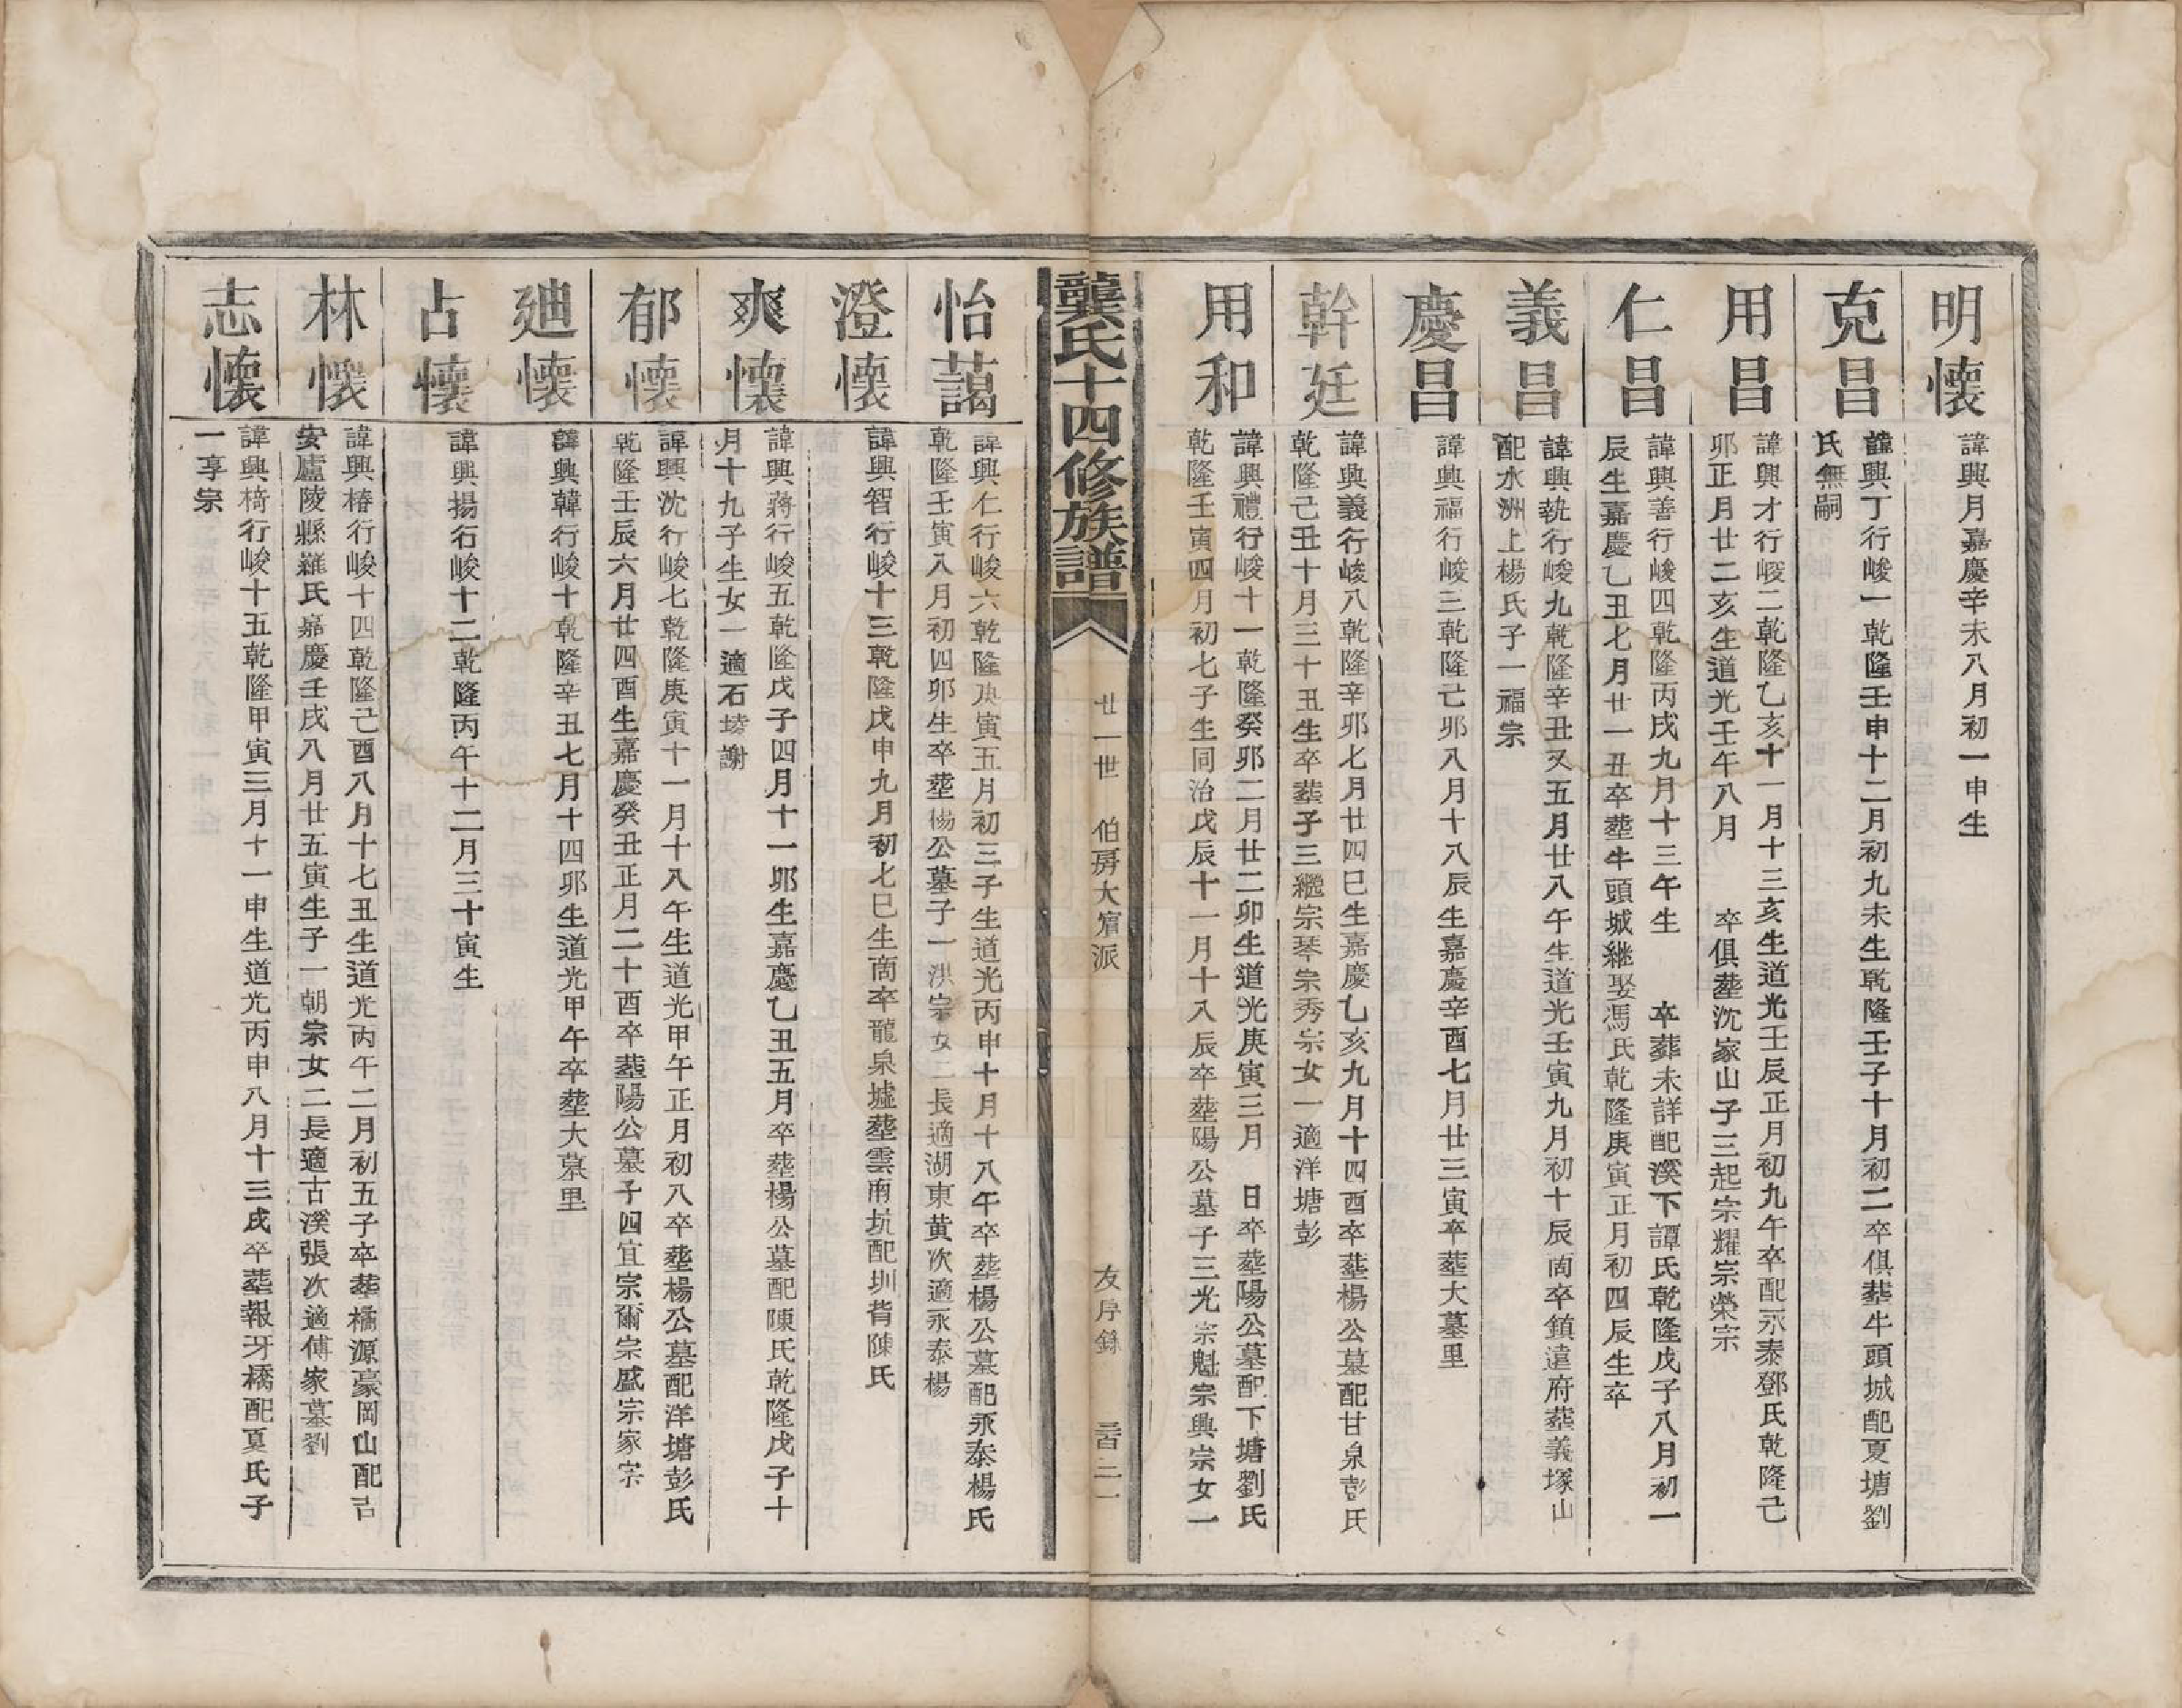 明懷
諱興月嘉慶辛未八月初一申生
克昌
諱興丁行峻一乾隆壬申十二月初九未生乾隆壬子十月初二卒俱塟牛頭城配夏塘劉
氏無嗣
用昌
諱興才行峻二乾隆乙亥十一月十三亥生道光壬辰正月初九午卒配永泰鄧氏乾隆己
卯正月廿二亥生道光壬午八月　卒俱塟沈家山子三起宗耀宗榮宗
仁昌
諱興善行峻四乾隆丙戌九月十三午生　卒葬未詳配溪下譚氏乾隆戊子八月初一
辰生嘉慶乙丑七月廿一丑卒塟牛頭城継娶馮氏乾隆庚寅正月初四辰生卒
義昌
諱興執行峻九乾隆辛丑又五月廿八午生道光壬寅九月初十辰時卒鎮遠府塟義塚山
配水洲上楊氏子一福宗
慶昌
諱興福行峻三乾隆己卯八月十八辰生嘉慶辛酉七月廿三寅卒塟大墓里
幹廷
諱興義行峻八乾隆辛卯七月廿四巳生嘉慶乙亥九月十四酉卒塟楊公墓配甘泉彭氏
乾隆己丑十月三十丑生卒塟子三繼宗琴宗秀宗女一適洋塘彭
用和
諱興禮行峻十一乾隆癸卯二月廿二卯生道光庚寅三月　日卒塟陽公墓配下塘劉氏
乾隆壬寅四月初七子生同治戊辰十一月十八辰卒塟陽公墓子三光宗魁宗興宗女一
龔氏十四修族譜
廿一世　伯房大宿派
友序錄
三百二一
怡藹
諱興仁行峻六乾隆庚寅五月初三子生道光丙申十月十八午卒塟楊公墓配永泰楊氏
乾隆壬寅八月初四卯生卒塟楊公墓子一洪宗女二長適湖東黄次適永泰楊
澄懷
諱興智行峻十三乾隆戊申九月初七巳生商卒龍泉墟塟雲南坑配圳背陳氏
爽懷
諱興蔣行峻五乾隆戊子四月十一卯生嘉慶乙丑五月卒塟楊公墓配陳氏乾隆戊子十
月十九子生女一適石塝謝
郁懷
諱興沈行峻七乾隆庚寅十一月十八午生道光甲午正月初八卒塟楊公墓配洋塘彭氏
乾隆壬辰六月廿四酉生嘉慶癸丑正月二十酉卒塟陽公墓子四宜宗爾宗盛宗家宗
廸懷
諱興韓行峻十乾隆辛丑七月十四卯生道光甲午卒塟大墓里
占懷
諱興揚行峻十二乾隆丙午十二月三十寅生
林懷
諱興椿行峻十四乾隆己酉八月十七丑生道光丙午二月初五子卒塟橘源豪岡山配吉
安廬陵縣羅氏嘉慶壬戌八月廿五寅生子一朝宗女二長適古溪張次適傅家墓劉
志懷
諱興椅行峻十五乾隆甲寅三月十一申生道光丙申八月十三戌卒塟報牙橋配夏氏子
一享宗